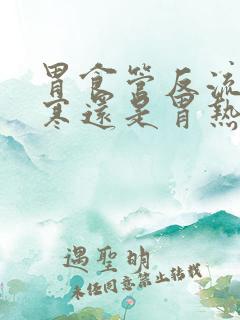 胃食管反流
寒還是胃熱
遇聖明
未经同意禁止转载